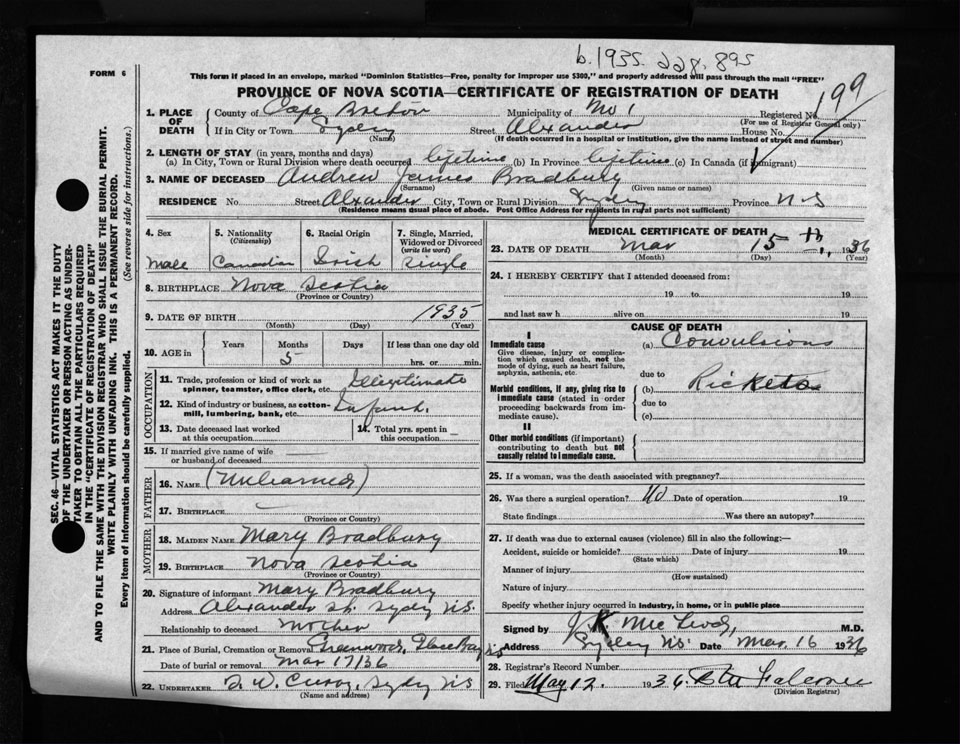 b. 1935. 228. 895
FORM 6
This form if placed in an envelope, marked "Dominion Statistics—Free, penalty for improper use $300," and properly addressed will pass through the mail "FREE"
PROVINCE OF NOVA SCOTIA—CERTIFICATE OF REGISTRATION OF DEATH
199
1. PLACE OF DEATH
County of Cape Breton Municipality of No 1 Registered No.
(For use of Registrar General only)
If in City or Town Sydney Street Alexander House No.
(Name) (If death occurred in a hospital or institution, give the name instead of street and number)
2. LENGTH OF STAY (in years, months and days)
(a) In City, Town or Rural Division where death occurred lifetime (b) In Province lifetime (c) In Canada (if immigrant)
3. NAME OF DECEASED Andrew James Bradbury
(Surname) (Given name or names)
RESIDENCE No. Street Alexander City, Town or Rural Division Sydney Province N-S
(Residence means usual place of abode. Post Office Address for residents in rural parts not sufficient)
4. Sex
Male
5. Nationality (Citizenship)
Canadian
6. Racial Origin
Irish
7. Single, Married, Widowed or Divorced (write the word)
Single
8. BIRTHPLACE Nova Scotia
(Province or Country)
9. DATE OF BIRTH 1935
(Month) (Day) (Year)
10. AGE in Years Months Days If less than one day old
5 hrs. or min.
OCCUPATION
11. Trade, profession or kind of work as spinner, teamster, office clerk, etc. Illegitimate
12. Kind of industry or business, as cotton-mill, lumbering, bank, etc. Infant.
13. Date deceased last worked at this occupation
14. Total yrs. spent in this occupation
15. If married give name of wife or husband of deceased
FATHER
16. NAME (Unlearned)
17. BIRTHPLACE —
(Province or Country)
MOTHER
18. MAIDEN NAME Mary Bradbury
19. BIRTHPLACE Nova Scotia
(Province or Country)
20. Signature of informant Mary Bradbury
Address Alexander St. Sydney N.S.
Relationship to deceased Mother
21. Place of Burial, Cremation or Removal Greenwood, Glace Bay NS
Date of burial or removal Mar 17/36
22. UNDERTAKER Sydney NS
(Name and address)
MEDICAL CERTIFICATE OF DEATH
23. DATE OF DEATH Mar 15th, 1936
(Month) (Day) (Year)
24. I HEREBY CERTIFY that I attended deceased from:
19 to 19
and last saw h alive on 19
CAUSE OF DEATH
I
Immediate cause
Give disease, injury or complication which caused death, not the mode of dying, such as heart failure, asphyxia, asthenia, etc.
(a) Convulsions
due to
Morbid conditions, if any, giving rise to immediate cause (stated in order proceeding backwards from immediate cause).
(b) Rickets
due to
(c)
II
Other morbid conditions (if important) contributing to death but not causally related to immediate cause.
25. If a woman, was the death associated with pregnancy?
26. Was there a surgical operation? No Date of operation 19
State findings Was there an autopsy?
27. If death was due to external causes (violence) fill in also the following:—
Accident, suicide or homicide? Date of injury 19
(State which)
Manner of injury
(How sustained)
Nature of injury
Specify whether injury occurred in industry, in home, or in public place
Signed by J K McLeod, M.D.
Address Sydney NS. Date Mar. 16 1936
28. Registrar's Record Number
29. Filed May 12. 1936 Falconer
(Division Registrar)
SEC. 46—VITAL STATISTICS ACT MAKES IT THE DUTY
OF THE UNDERTAKER OR PERSON ACTING AS UNDER-
TAKER TO OBTAIN ALL THE PARTICULARS REQUIRED
IN THE "CERTIFICATE OF REGISTRATION OF DEATH"
AND TO FILE THE SAME WITH THE DIVISION REGISTRAR WHO SHALL ISSUE THE BURIAL PERMIT.
WRITE PLAINLY WITH UNFADING INK. THIS IS A PERMANENT RECORD.
Every item of information should be carefully supplied. (See reverse side for instructions.)